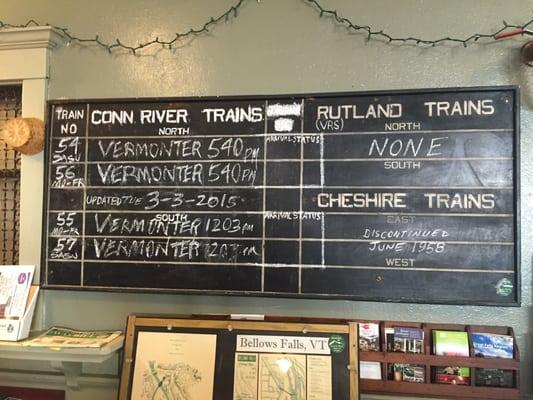 TRAIN NO
CONN RIVER TRAINS
TRAIN
NORTH
ARRIVAL STATUS
54 SASU VERMONTER 540 PM
56 MO-FR VERMONTER 540 PM
UPDATED TUE 3-3-2015
SOUTH
ARRIVAL STATUS
55 MO-FR VERMONTER 1203 PM
57 SASU VERMONTER 1203 PM
RUTLAND TRAINS
(VRS) NORTH
NONE
SOUTH
CHESHIRE TRAINS
EAST
DISCONTINUED
JUNE 1958
WEST
Bellows Falls, VT